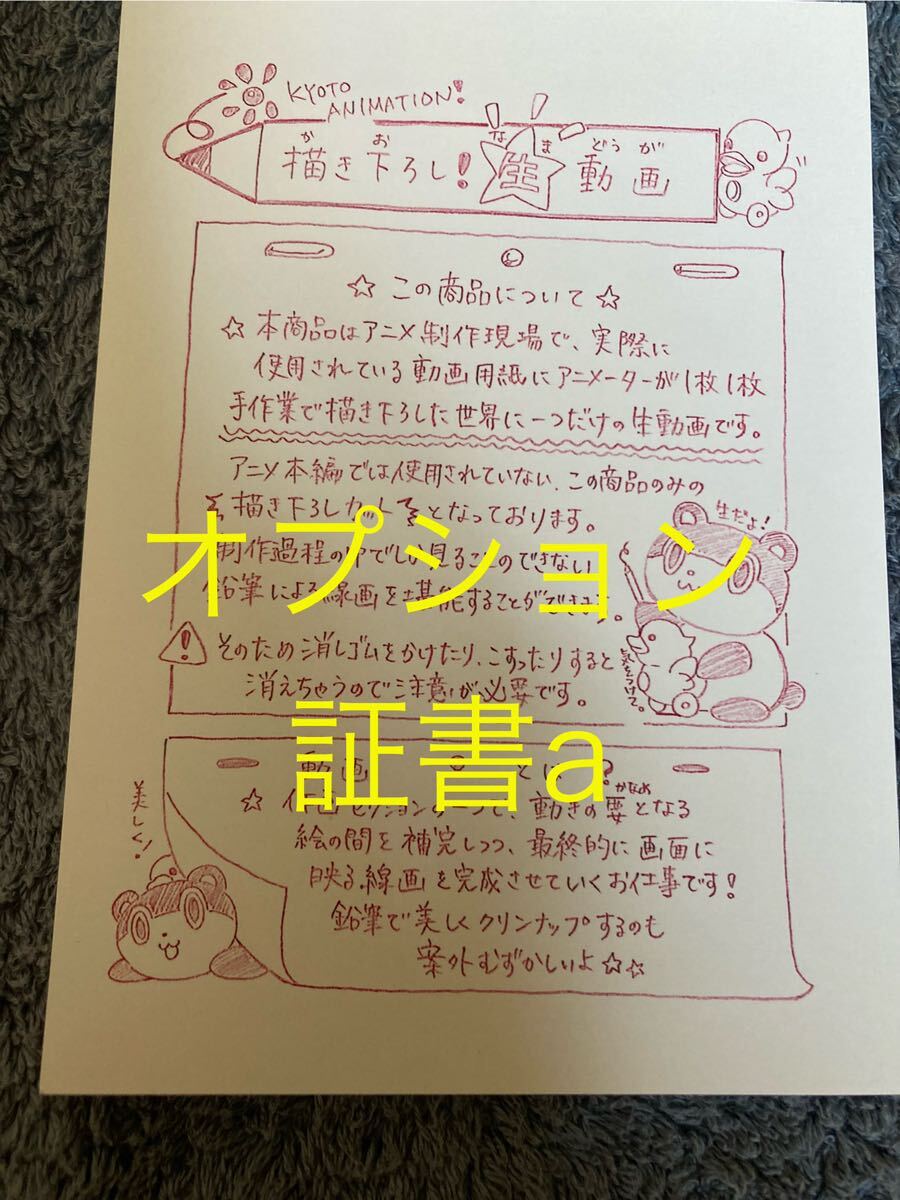 KYOTO
ANIMATION!
描き下ろし! 生動画
か お なま どうが
☆ この商品について ☆
☆ 本商品はアニメ制作現場で、実際に
使用されている動画用紙にアニメーターが1枚1枚
手作業で描き下ろした世界に一つだけの生動画です。
アニメ本編では使用されていない、この商品のみの
描き下ろしカットとなっております。
生だよ!
オプション
制作過程の中でしか見ることのできない
鉛筆による線画を堪能することができます。
そのため消しゴムをかけたり、こすったりすると
消えちゃうので注意が必要です。
気をつけて。
証書a
動画 とは?
美しく!
☆ 作画セクションの一つで、動きの要となる
かなめ
絵の間を補完しつつ、最終的に画面に
映る線画を完成させていくお仕事です!
鉛筆で美しくクリンナップするのも
案外むずかしいよ☆☆